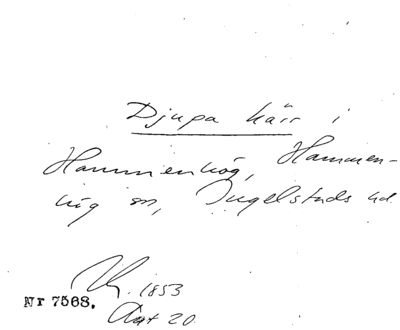 Djupa kärr i
Hammenhög, Hammen-
hög sn, Ingelstads hd
1853
Nr 7568.
20.